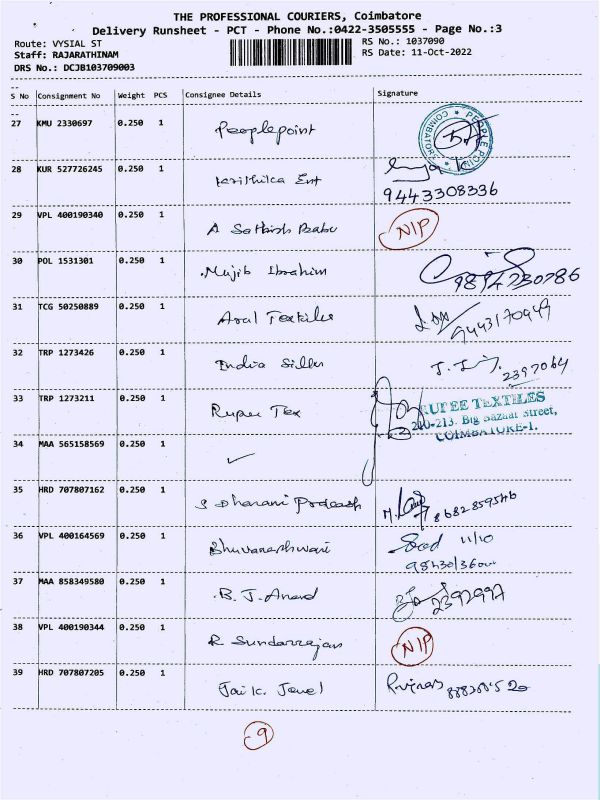 THE PROFESSIONAL COURIERS, Coimbatore
Delivery Runsheet - PCT - Phone No.:0422-3505555 - Page No.:3
Route: VYSIAL ST RS No.: 1037090
Staff: RAJARATHINAM RS Date: 11-Oct-2022
DRS No.: DCJB103709003
S No Consignment No Weight PCS Consignee Details Signature
27 KMU 2330697 0.250 1 Peoplepoint
28 KUR 527726245 0.250 1 Ent
9443308336
29 VPL 400190340 0.250 1 A Sathish Babu NIP
30 POL 1531301 0.250 1 Mujib Ibrahim 9894730786
31 TCG 50250889 0.250 1 Aral Textiles 9443170949
32 TRP 1273426 0.250 1 India Silks 2397064
33 TRP 1273211 0.250 1 Rupee Tex RUPEE TEXTILES
210-213, Big Bazaar Street,
COIMBATORE-1.
34 MAA 565158569 0.250 1 ✓
35 HRD 707807162 0.250 1 S Dharani 8682859546
36 VPL 400164569 0.250 1 Bhuvaneshwari 11/10
37 MAA 858349580 0.250 1 B. J. Anand 2392997
38 VPL 400190344 0.250 1 R Sundarrajan NIP
39 HRD 707807205 0.250 1
9